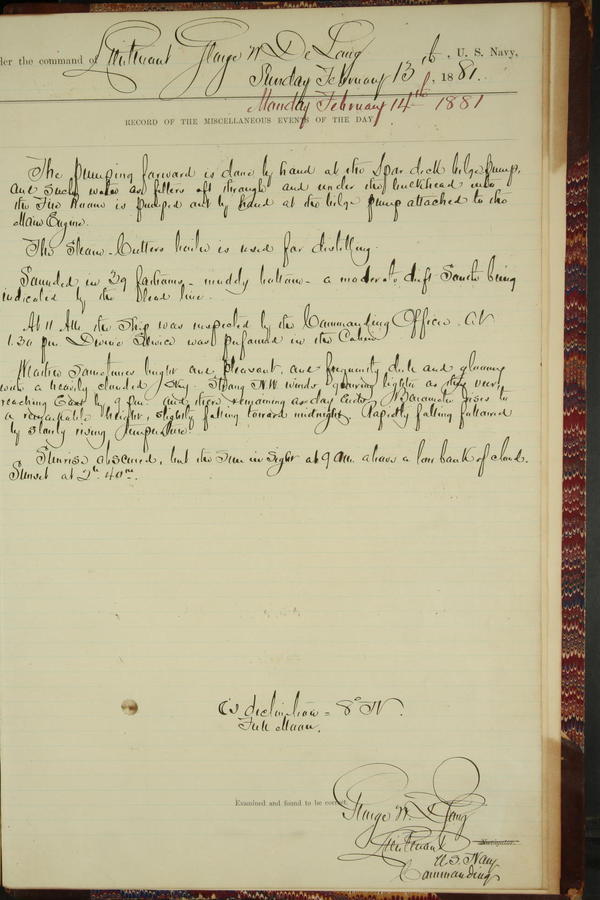 der the command of Lieutenant George W. De Long, U. S. Navy,
Sunday February 13th, 1881.
Monday February 14th 1881
RECORD OF THE MISCELLANEOUS EVENTS OF THE DAY.
The pumping forward is done by hand at the spar deck bilge pump,
and such water as filters aft through and under the bulkhead into
the Fire Room is pumped out by hand at the bilge pump attached to the
Main Engine.
The Steam-Cutters boiler is used for distilling.
Sounded in 39 fathoms - muddy bottom - a moderate drift South being
indicated by the lead line.
At 11 AM the ship was inspected by the Commanding Officer. At
1.30 pm Divine Service was performed in the Cabin.
Weather sometimes bright and pleasant, and frequently dull and gloomy
with a heavily clouded sky. Strong N.W. winds growing lighter as they veer,
reaching East by 9 pm and there remaining as day ends. Barometer rises to
a remarkable height, slightly falling toward midnight. Rapidly falling followed
by slowly rising temperature.
Sunrise obscured, but the Sun in sight at 9 am above a low bank of cloud.
Sunset at 2h 40m.
declination = 8° N.
Full Moon.
Examined and found to be correct.
George W. De Long
Lieutenant
Navigator.
U.S. Navy
Commanding